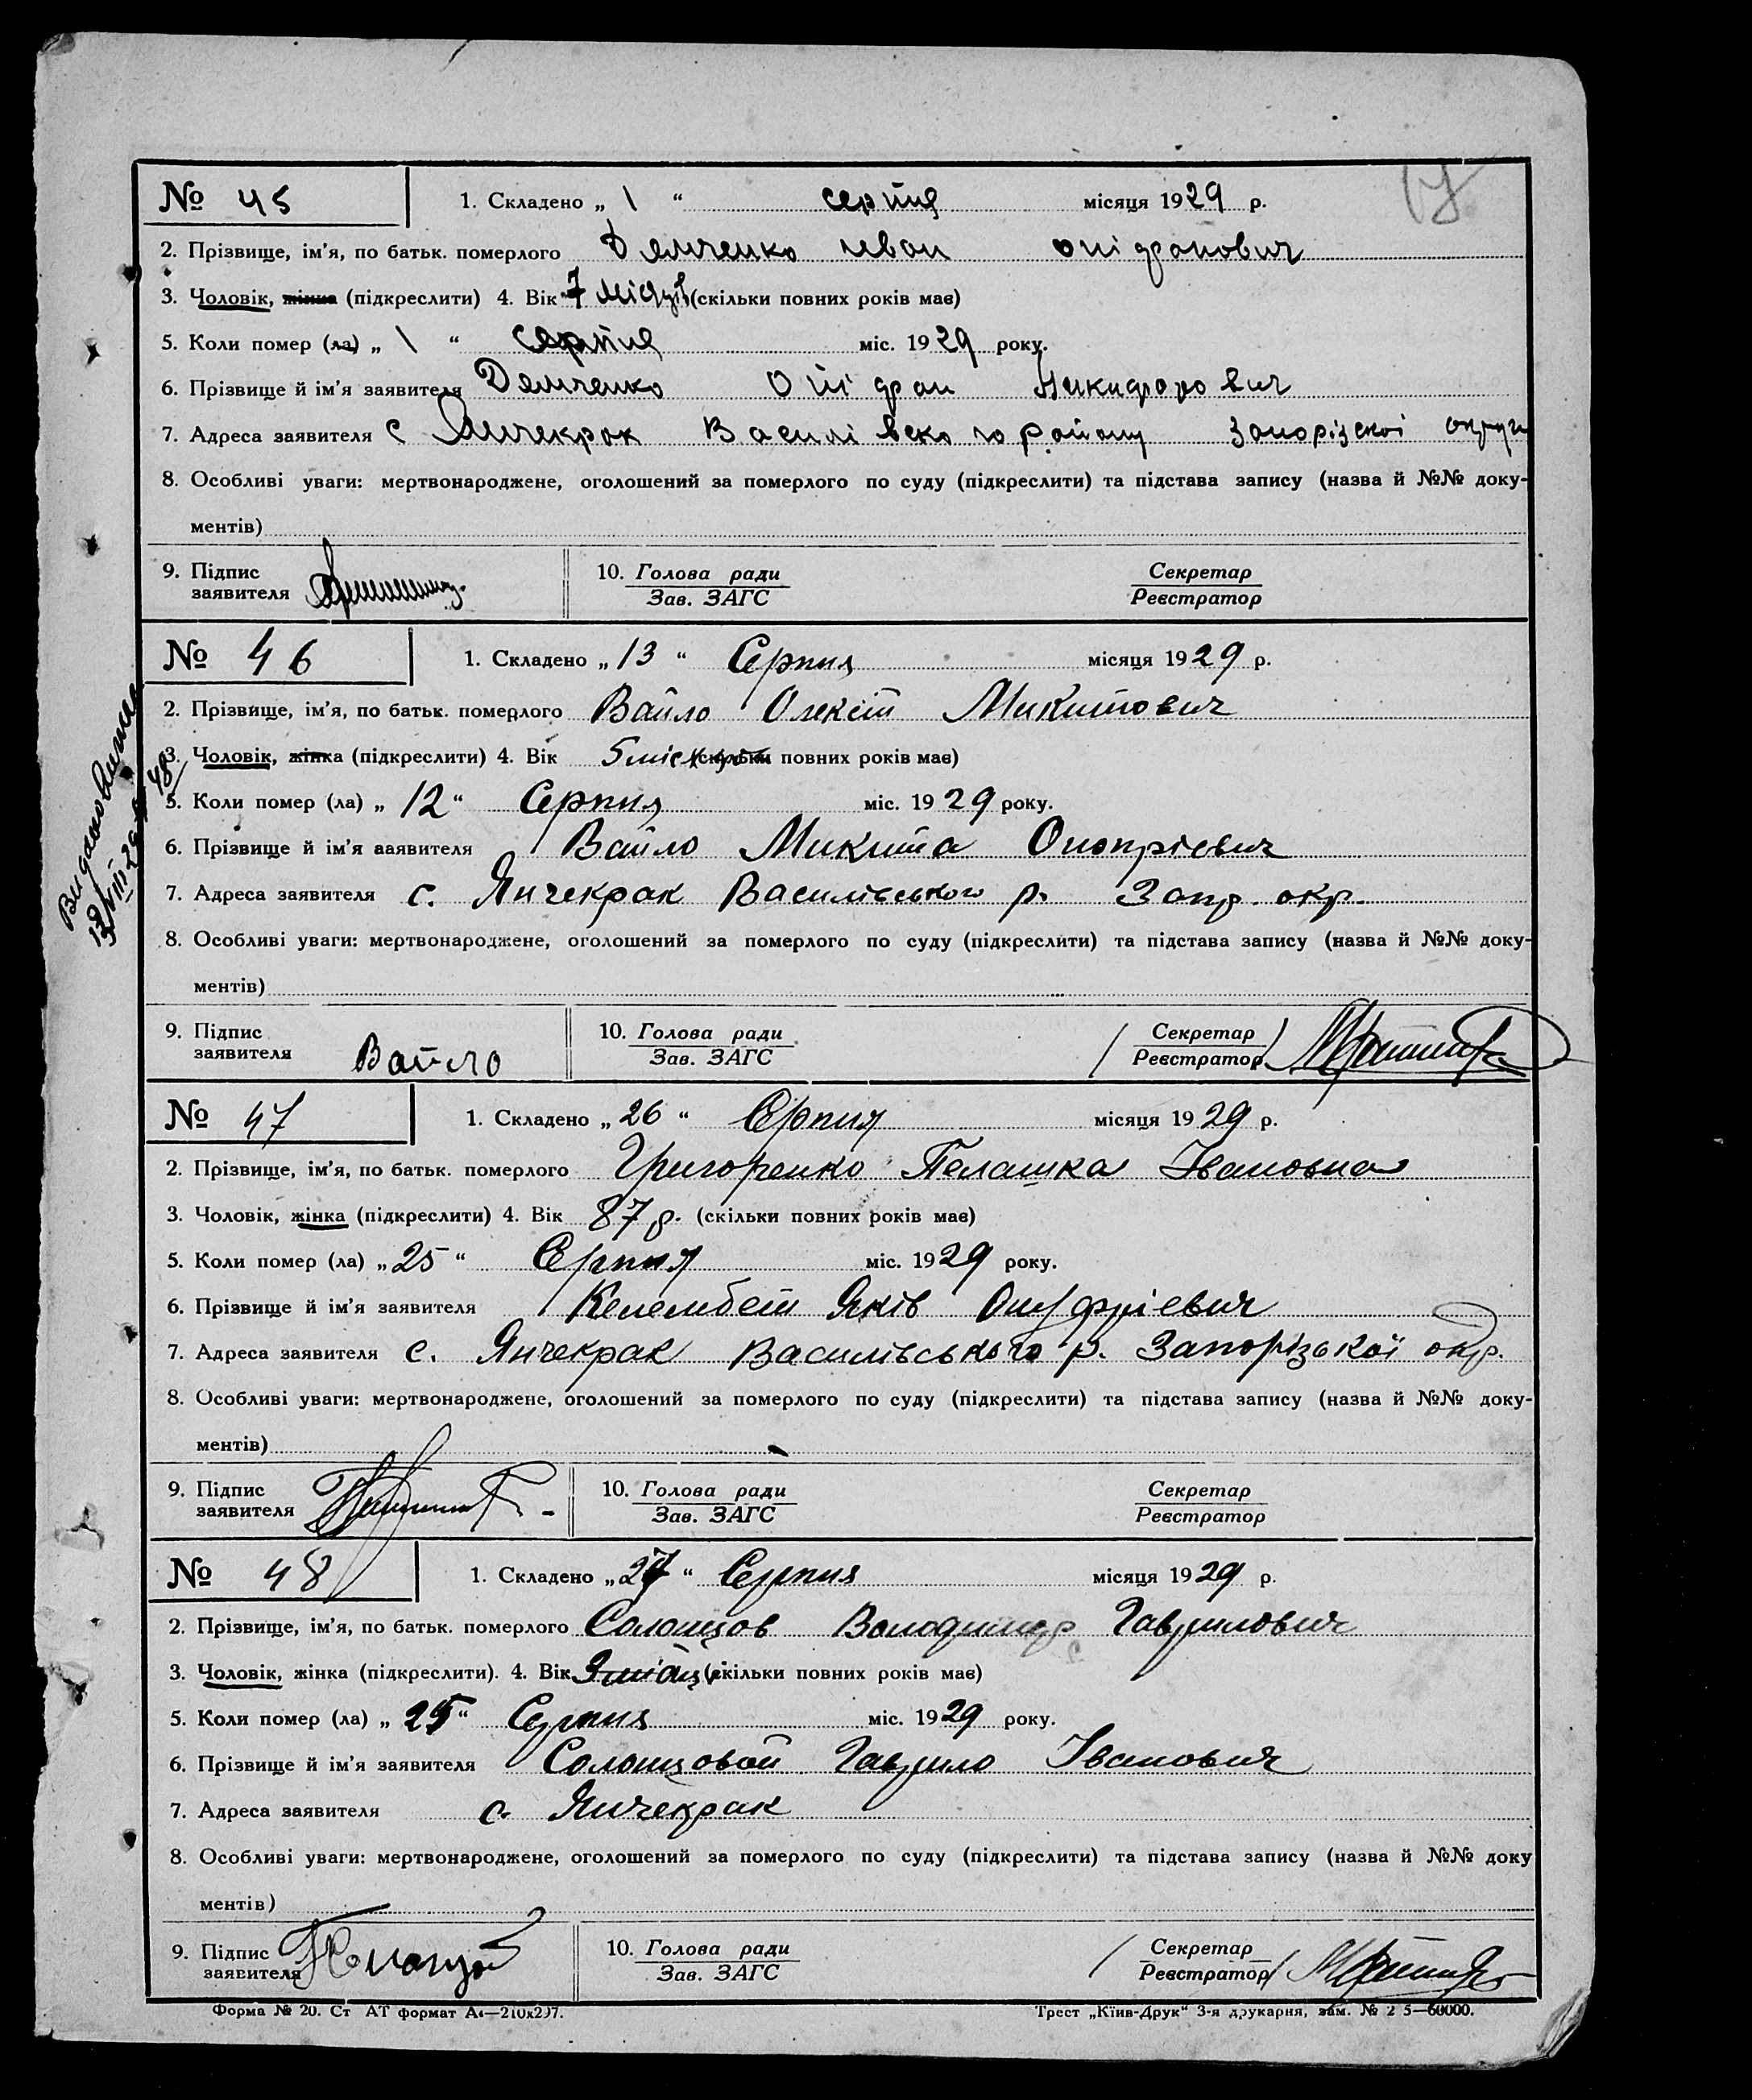 № 45 1. Складено „ 1 “ серпня місяця 1929 р.
2. Прізвище, ім'я, по батьк. померлого Демченко Иван
3. Чоловік, жінка (підкреслити) 4. Вік 7 (скільки повних років має)
5. Коли помер (ла) „ 1 “ серпня міс. 1929 року.
6. Прізвище й ім'я заявителя Демченко Никифорович
7. Адреса заявителя с Янчекрак Василівского району Запорізскоі округи
8. Особливі уваги: мертвонароджене, оголошений за померлого по суду (підкреслити) та підстава запису (назва й №№ доку-
ментів)
9. Підпис заявителя 10. Голова ради Зав. ЗАГС Секретар Реєстратор
№ 46 1. Складено „ 13 “ Серпня місяця 1929 р.
2. Прізвище, ім'я, по батьк. померлого Вайло Олексій Микитович
3. Чоловік, жінка (підкреслити) 4. Вік 5 міс (скільки повних років має)
5. Коли помер (ла) „ 12 “ Серпня міс. 1929 року.
6. Прізвище й ім'я заявителя Вайло Микита Онопрієвич
7. Адреса заявителя с. Янчекрак Василівського р. Запр. окр.
8. Особливі уваги: мертвонароджене, оголошений за померлого по суду (підкреслити) та підстава запису (назва й №№ доку-
ментів)
9. Підпис заявителя Вайло 10. Голова ради Зав. ЗАГС Секретар Реєстратор
№ 47 1. Складено „ 26 “ Серпня місяця 1929 р.
2. Прізвище, ім'я, по батьк. померлого Григоренко Пелашка Івановна
3. Чоловік, жінка (підкреслити) 4. Вік 87 р. (скільки повних років має)
5. Коли помер (ла) „ 25 “ Серпня міс. 1929 року.
6. Прізвище й ім'я заявителя Келембет Яків Онуфрієвич
7. Адреса заявителя с. Янчекрак Василівського р. Запорізької окр.
8. Особливі уваги: мертвонароджене, оголошений за померлого по суду (підкреслити) та підстава запису (назва й №№ доку-
ментів)
9. Підпис заявителя 10. Голова ради Зав. ЗАГС Секретар Реєстратор
№ 48 1. Складено „ 27 “ Серпня місяця 1929 р.
2. Прізвище, ім'я, по батьк. померлого Солонцов Володимир Гаврилович
3. Чоловік, жінка (підкреслити). 4. Вік (скільки повних років має)
5. Коли помер (ла) „ 25 “ Серпня міс. 1929 року.
6. Прізвище й ім'я заявителя Солонцовой Гаврило Іванович
7. Адреса заявителя с. Янчекрак
8. Особливі уваги: мертвонароджене, оголошений за померлого по суду (підкреслити) та підстава запису (назва й №№ доку
ментів)
9. Підпис заявителя 10. Голова ради Зав. ЗАГС Секретар Реєстратор
Форма № 20. Ст АТ формат А4—210x297. Трест „Київ-Друк“ 3-я друкарня, зам. № 2 5—60000.